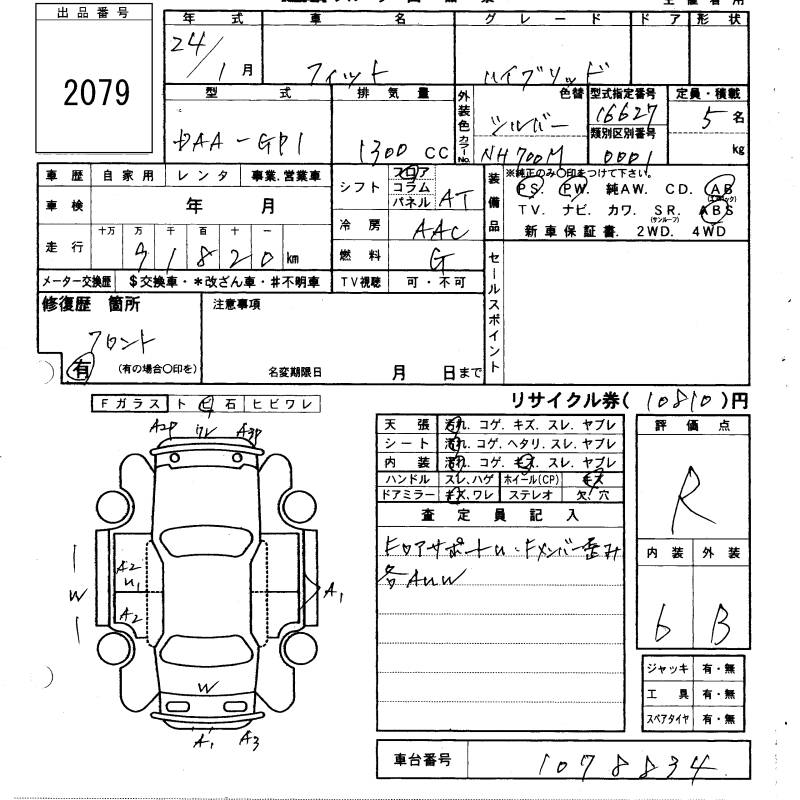 出品番号
2079
年式 車名 グレード ドア 形状
24/1月 フィット ハイブリッド
型式 排気量 外装色 色替 型式指定番号 定員・積載
DAA-GP1 1300 CC シルバー 16627 5名
カラーNo. NH700M 類別区別番号 0001 kg
車歴 自家用 レンタ 事業.営業車
車検 年 月
走行 十万 万 千 百 十 一
91820km
メーター交換歴 $交換車・*改ざん車・#不明車
シフト フロア コラム パネル AT
冷房 AAC
燃料 G
TV視聴 可・不可
装備品 ※純正のみ〇印をつけて下さい。
PS. PW. 純AW. CD. AB(エアバック)
TV. ナビ. カワ. SR.(サンルーフ) ABS
新車保証書. 2WD. 4WD
セールスポイント
修復歴 箇所
フロント
有 (有の場合〇印を)
注意事項
名変期限日 月 日まで
リサイクル券(10810)円
Fガラス トビ石 ヒビワレ
A2P ワレ A3P
A2
U1
A2
W
A1
W
A1 A3
天張 汚れ. コゲ. キズ. スレ. ヤブレ
シート 汚れ. コゲ. ヘタリ. スレ. ヤブレ
内装 汚れ. コゲ. キズ. スレ. ヤブレ
ハンドル スレ.ハゲ ホイール(CP) キズ
ドアミラー キズ.ワレ ステレオ 欠.穴
査定員記入
FロアサポートU・Fメンバー歪み
各AUW
評価点
R
内装 外装
6 B
ジャッキ 有・無
工具 有・無
スペアタイヤ 有・無
車台番号 1078834